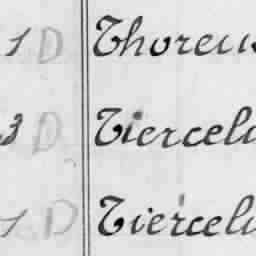 1 D Thoreux
3 D Tiercelu
1 D Tiercelu